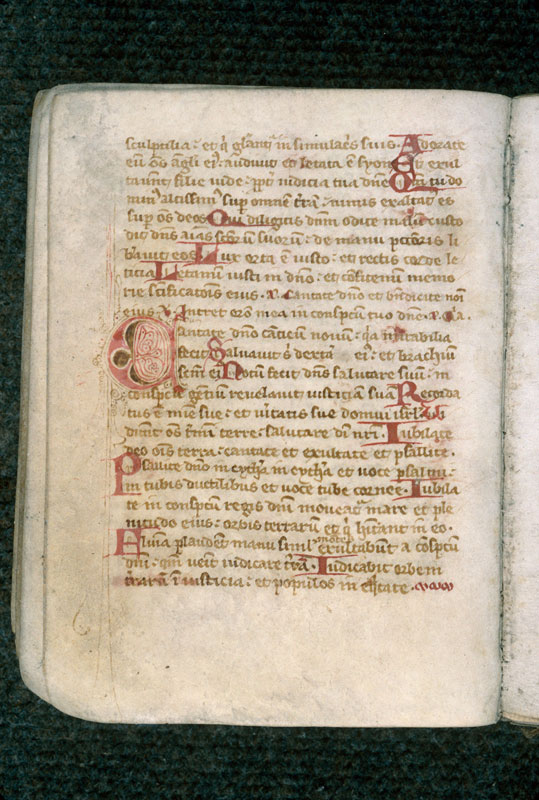 sculptilia: et q̃ glãntᷓ in simulacr̃s suis Adorate
eũ oẽs ãgli eiꝰ: audiuit et letata ẽ syon. Et exul
tauerũt filie iude: ꝓpt̃ iudicia tua dñe Qm̃ tu do
minꝰ altissimꝰ sup omnẽ tr̃ã: nimis exaltatꝰ es
sup oẽs deos Qui diligitis dñm odite malũ: custo
dit dñs aĩas sc̃oꝝ suoꝝ: de manu pctõris li
b̃auit eos Lux orta ẽ iusto: et rectis corde le
ticia Letamini iusti in dño: et cõfitemini memo
rie sc̃ificatõis eius. Cantate dño et bñdicite noĩ
eius Intret orõ mea in conspc̃u tuo dñe.
Cantate dño cãticũ nouũ: q̃a mirabilia
fecit Saluauit s̃ dexta eiꝰ: et brachiũ
sc̃m eiꝰ Notũ fecit dñs salutare suũ: in
conspc̃u gẽtiũ reuelauit iusticiam suã Recorda
tus ẽ mĩe sue: et ũitatis sue domui isrl̃ Vi
derũt oẽs t̃mini terre: salutare dĩ nr̃i. Iubilate
deo oĩs terra: cantate et exultate et psallite.
Psallite dño in cythã in cythã et uoce psalmi:
in tubis ductilibus et uoce tube cornee. Iubila
te in conspc̃u regis dñi: moueatᷓ mare et ple
nitudo eius: orbis terrarum et q̃ hĩtant in eo.
Flumĩa plaudent manu simul mõtes exultabũt a cõspc̃u
dñi: qm̃ uenit iudicare tr̃ã. Iudicabit orbem
tr̃arũ ĩ iusticia: et populos in eq̃tate.